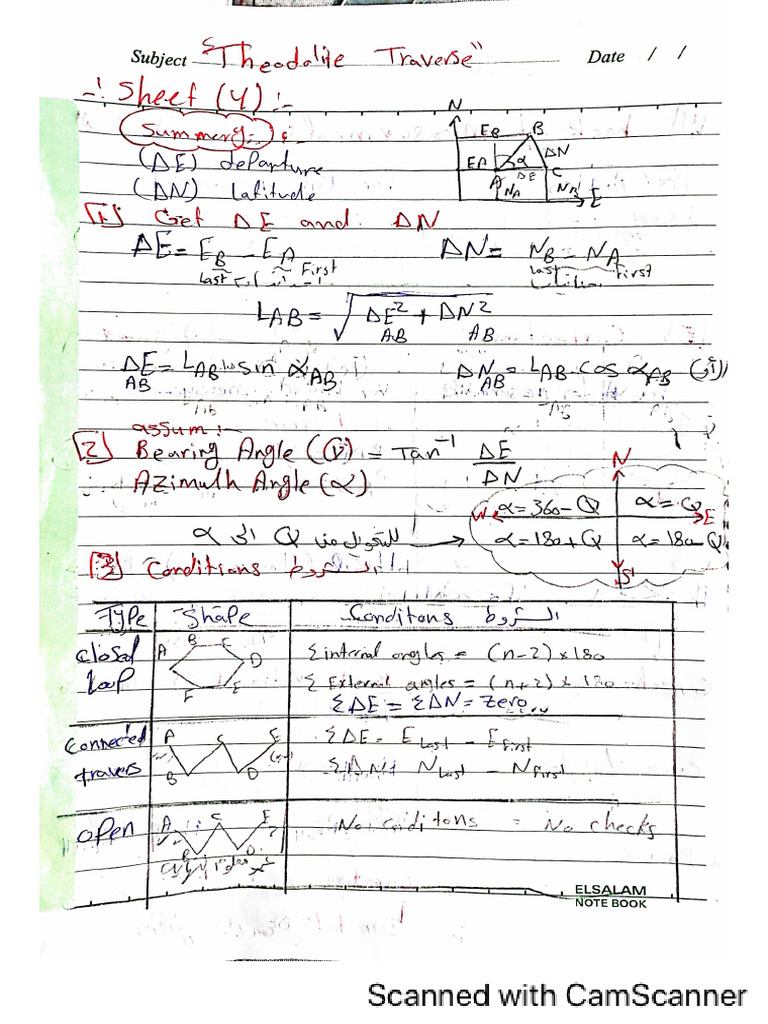 Subject "Theodalite Traverse" Date / /
Sheet (4) :-
Summery :
(ΔE) departure
(ΔN) latitude
N
EB B
EA α ΔN
A ΔE C
NA NB E
[1] Get ΔE and ΔN
ΔE = EB - EA ΔN = NB - NA
Last First Last First
LAB = √ΔE²AB + ΔN²AB
ΔEAB = LAB sin αAB ΔNAB = LAB cos αAB
assum :-
[2] Bearing Angle (φ) = Tan⁻¹ ΔE/ΔN
Azimuth Angle (α)
N
α = 360 - Q α = Q
W E
α = 180 + Q α = 180 - Q
S
للتحويل من Q الى α
[3] Conditions الشروط
Type Shape Conditons الشروط
closed Loop
A B C D E F
Σ internal angles = (n-2) x 180
Σ External angles = (n+2) x 180
ΣΔE = ΣΔN = Zero
Connected travers
A B C D E
ΣΔE = E Last - E First
ΣΔN = N Last - N First
open
A B C D E
No conditons = No checks
ELSALAM
NOTE BOOK
Scanned with CamScanner